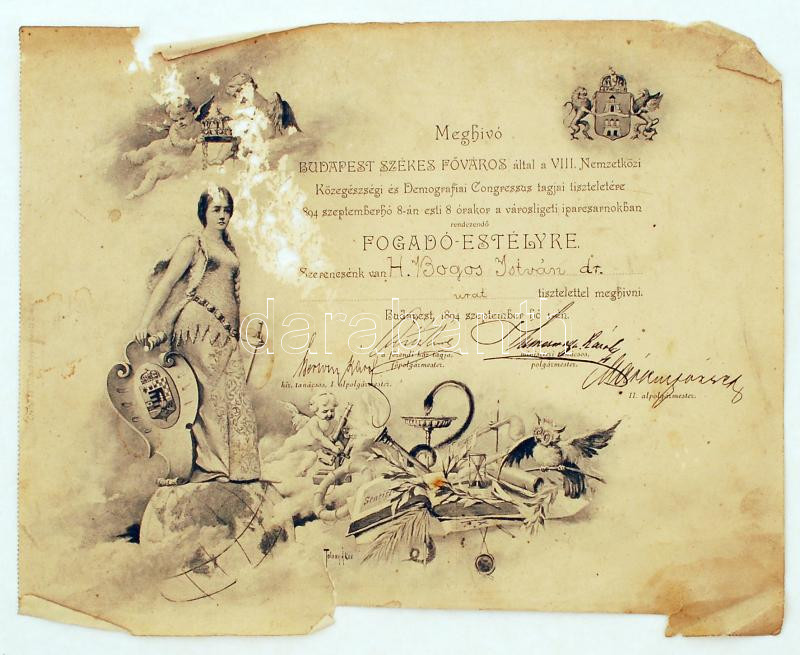 Meghivó
BUDAPEST SZÉKES FŐVÁROS által a VIII. Nemzetközi
Közegészségi és Demografiai Congressus tagjai tiszteletére
1894 szeptemberhó 8-án esti 8 órakor a városligeti iparcsarnokban
rendezendő
FOGADÓ-ESTÉLYRE.
Szerencsénk van H. Bogos István dr.
urat tisztelettel meghivni.
Budapest, 1894 szeptember hó
a főrendi ház tagja,
főpolgármester.
miniszteri tanácsos,
polgármester.
kir. tanácsos, I. alpolgármester.
II. alpolgármester.
darabanth